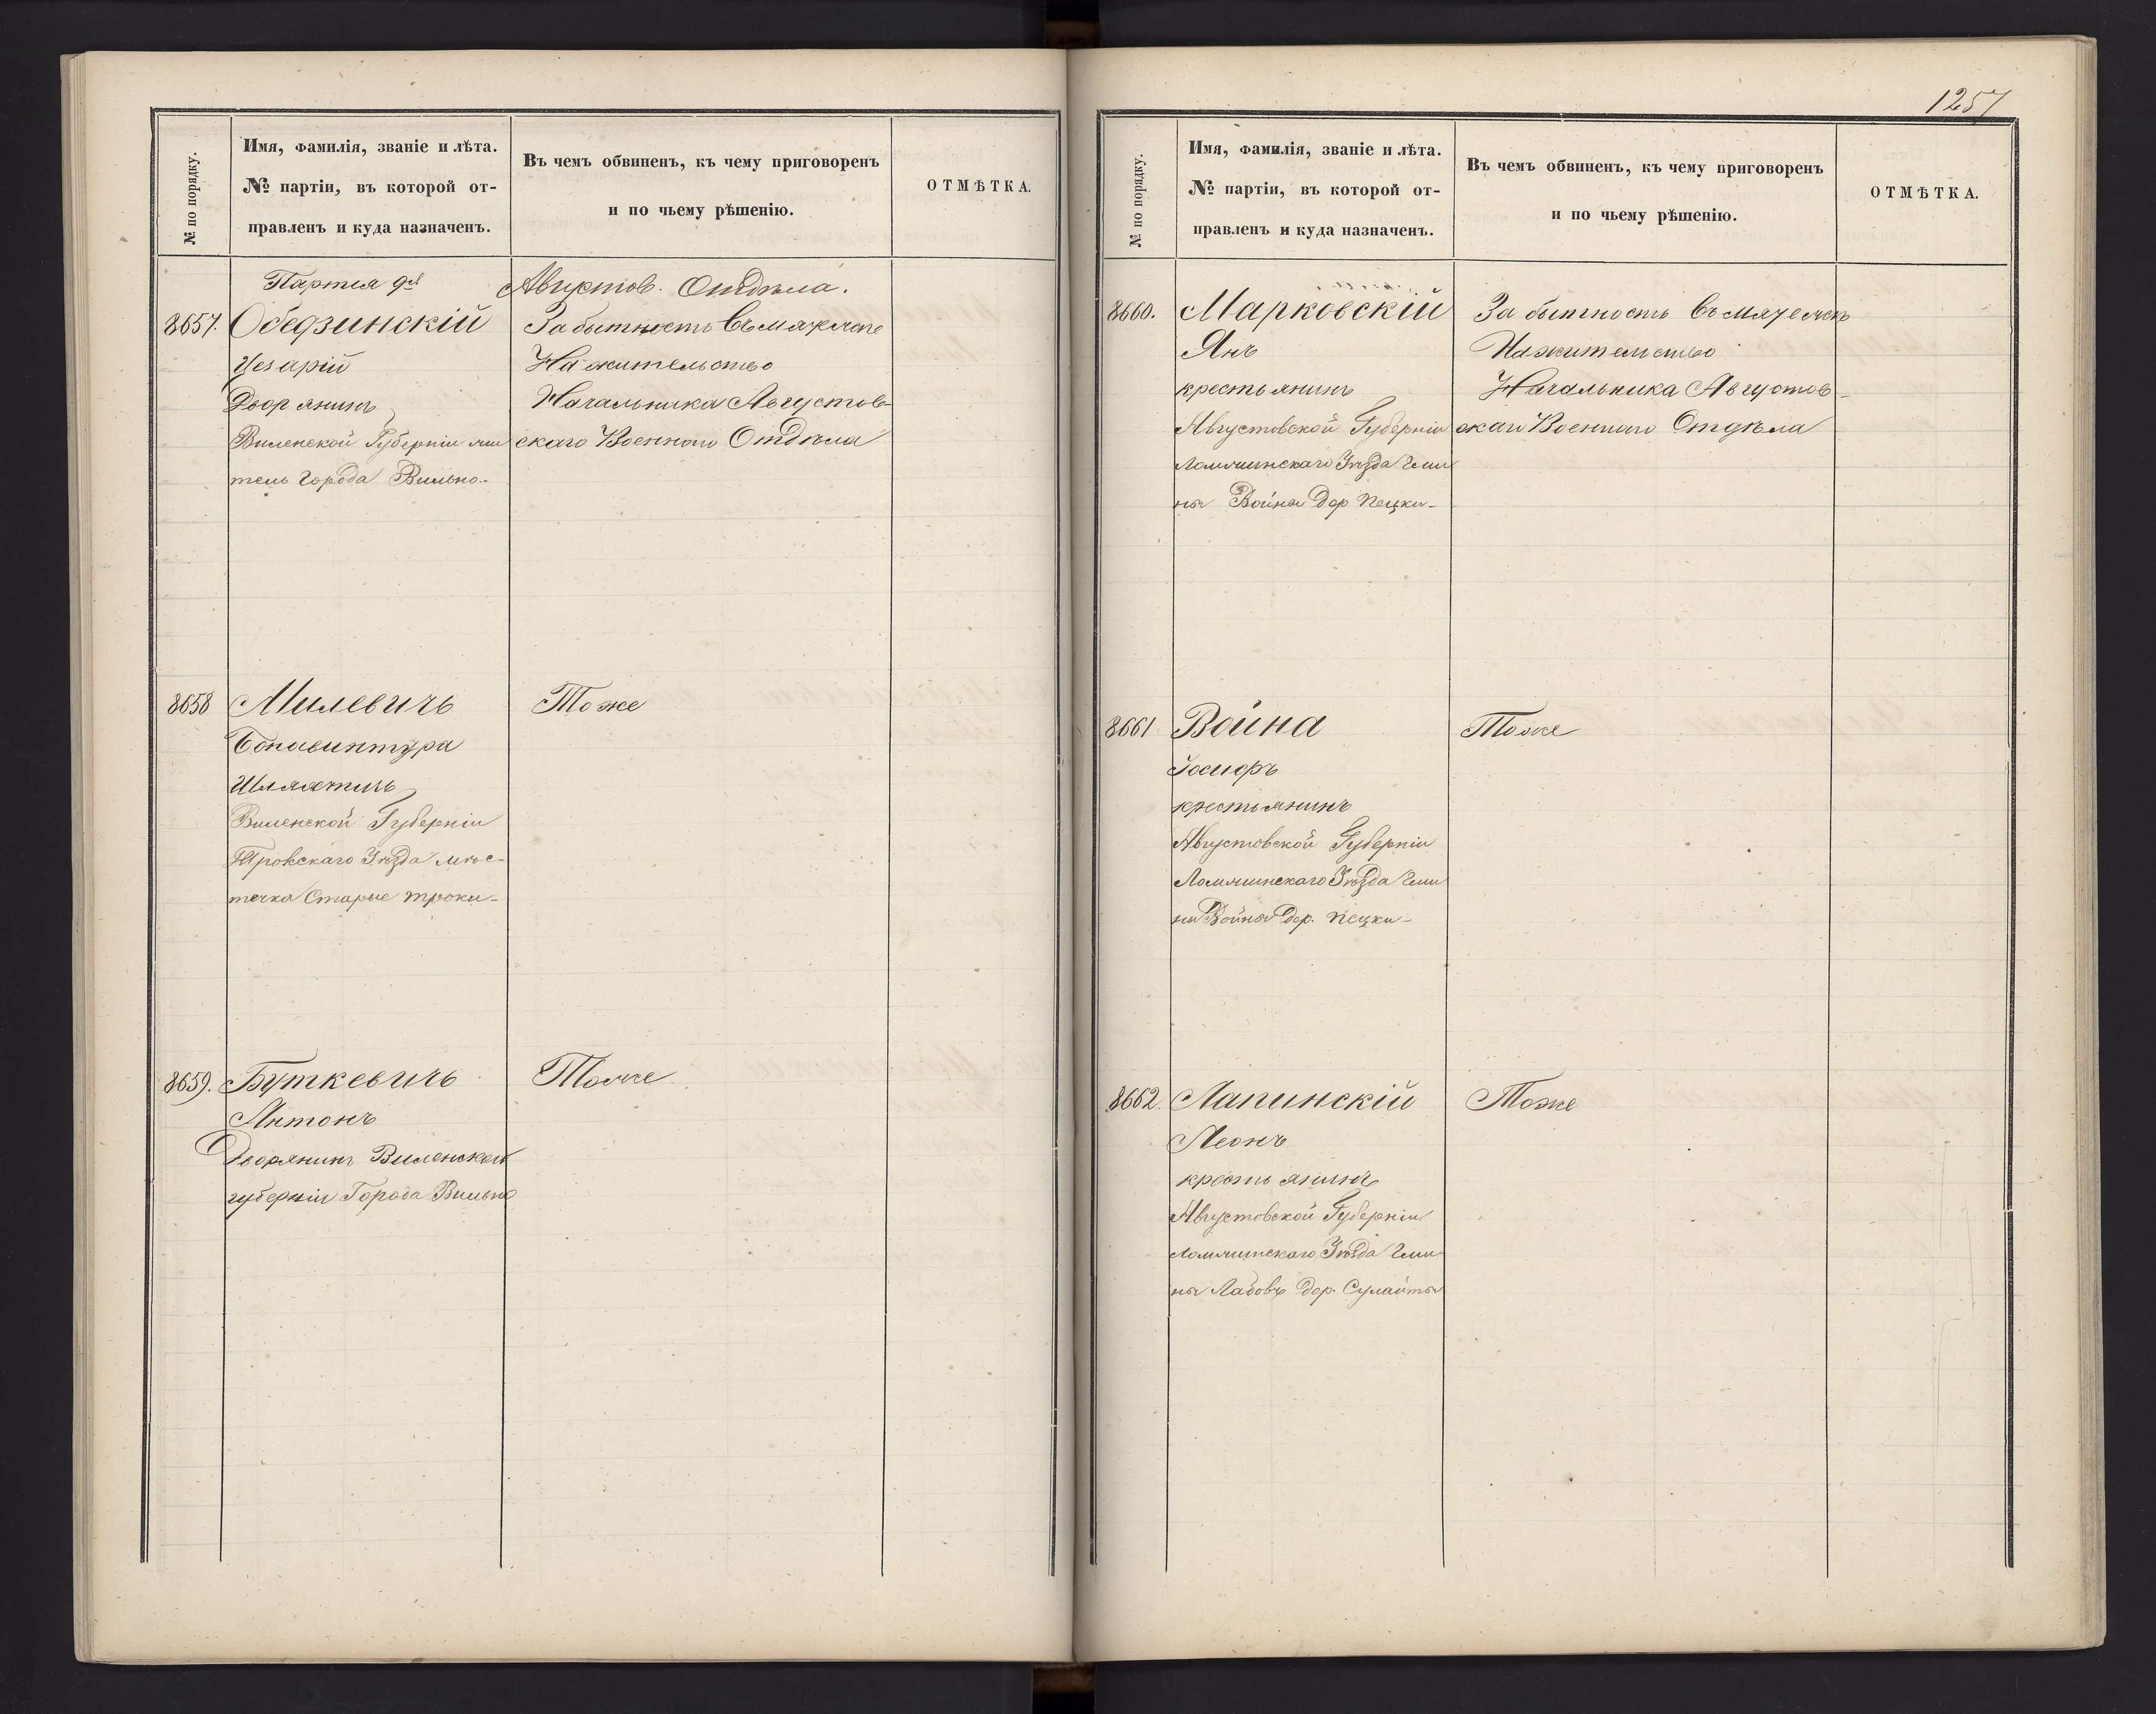 № по порядку.
Имя, фамилія, званіе и лѣта.
№ партіи, въ которой от-
правленъ и куда назначенъ.
Въ чемъ обвиненъ, къ чему приговоренъ
и по чьему рѣшенію.
ОТМѢТКА.
Партія 9я Августов. Отдѣла.
8657. Обедзинскій
Цезарій
Дворянинъ
Виленской Губерніи жи
тель Города Вильно.
За бытность въ мятеже
На жительство
Начальника Августов-
скаго Военнаго Отдѣла
8658 Милевичъ
Бонавинтура
Шляхтичъ
Виленской Губерніи
Трокскаго Уѣзда мѣс-
течка Старые троки-
Тоже
8659. Буткевичъ
Антонъ
Дворянинъ Виленской
губерніи Города Вильно
Тоже
1257
№ по порядку.
Имя, фамилія, званіе и лѣта.
№ партіи, въ которой от-
правленъ и куда назначенъ.
Въ чемъ обвиненъ, къ чему приговоренъ
и по чьему рѣшенію.
ОТМѢТКА.
8660. Марковскій
Янъ
крестьянинъ
Августовской Губерніи
Ломжинскаго Уѣзда Гми
ны Война Дер Пецки-
За бытность въ мятежѣ
На жительство
Начальника Августов-
скаго Военнаго Отдѣла
8661 Война
Іосифъ
крестьянинъ
Августовской Губерніи
Ломжинскаго Уѣзда Гми
ны Война Дер. Пецки-
Тоже
8662. Лапинскій
Леонъ
крестьянинъ
Августовской Губерніи
Ломжинскаго Уѣзда Гми
ны Лабовъ Дер.
Тоже